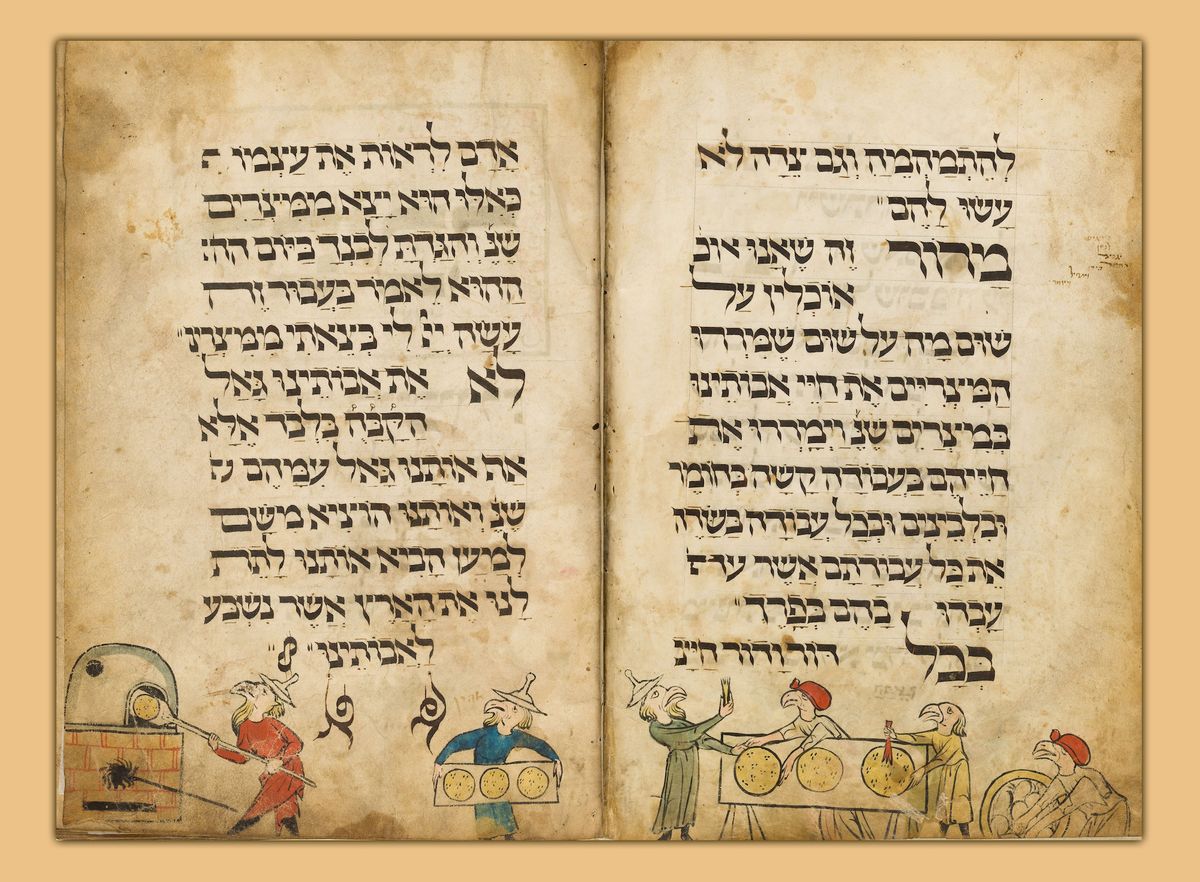 להתמהמה וגם צדה לא
עשו להם
מרור זה שאנו אוכ
אוכלין על
שום מה על שום שמררו
המיצריים את חיי אבותינו
במיצרים שנ וימררו את
חייהם בעבודה קשה בחומר
ובלבינים ובכל עבודה בשדה
את כל עבודתם אשר
עבדו בהם בפרך
בכל דור ודור חייב
אדם לראות את עצמו
כאלו הוא יצא ממיצרים
שנ והגדת לבנך ביום הה
ההוא לאמר בעבור זה
עשה יי לי בצאתי ממיצרי
לא את אבותינו גאל
הקבה בלבד אלא
אף אותנו גאל עמהם
שנ ואותנו הוציא משם
למען הביא אותנו לתת
לנו את הארץ אשר נשבע
לאבותינו